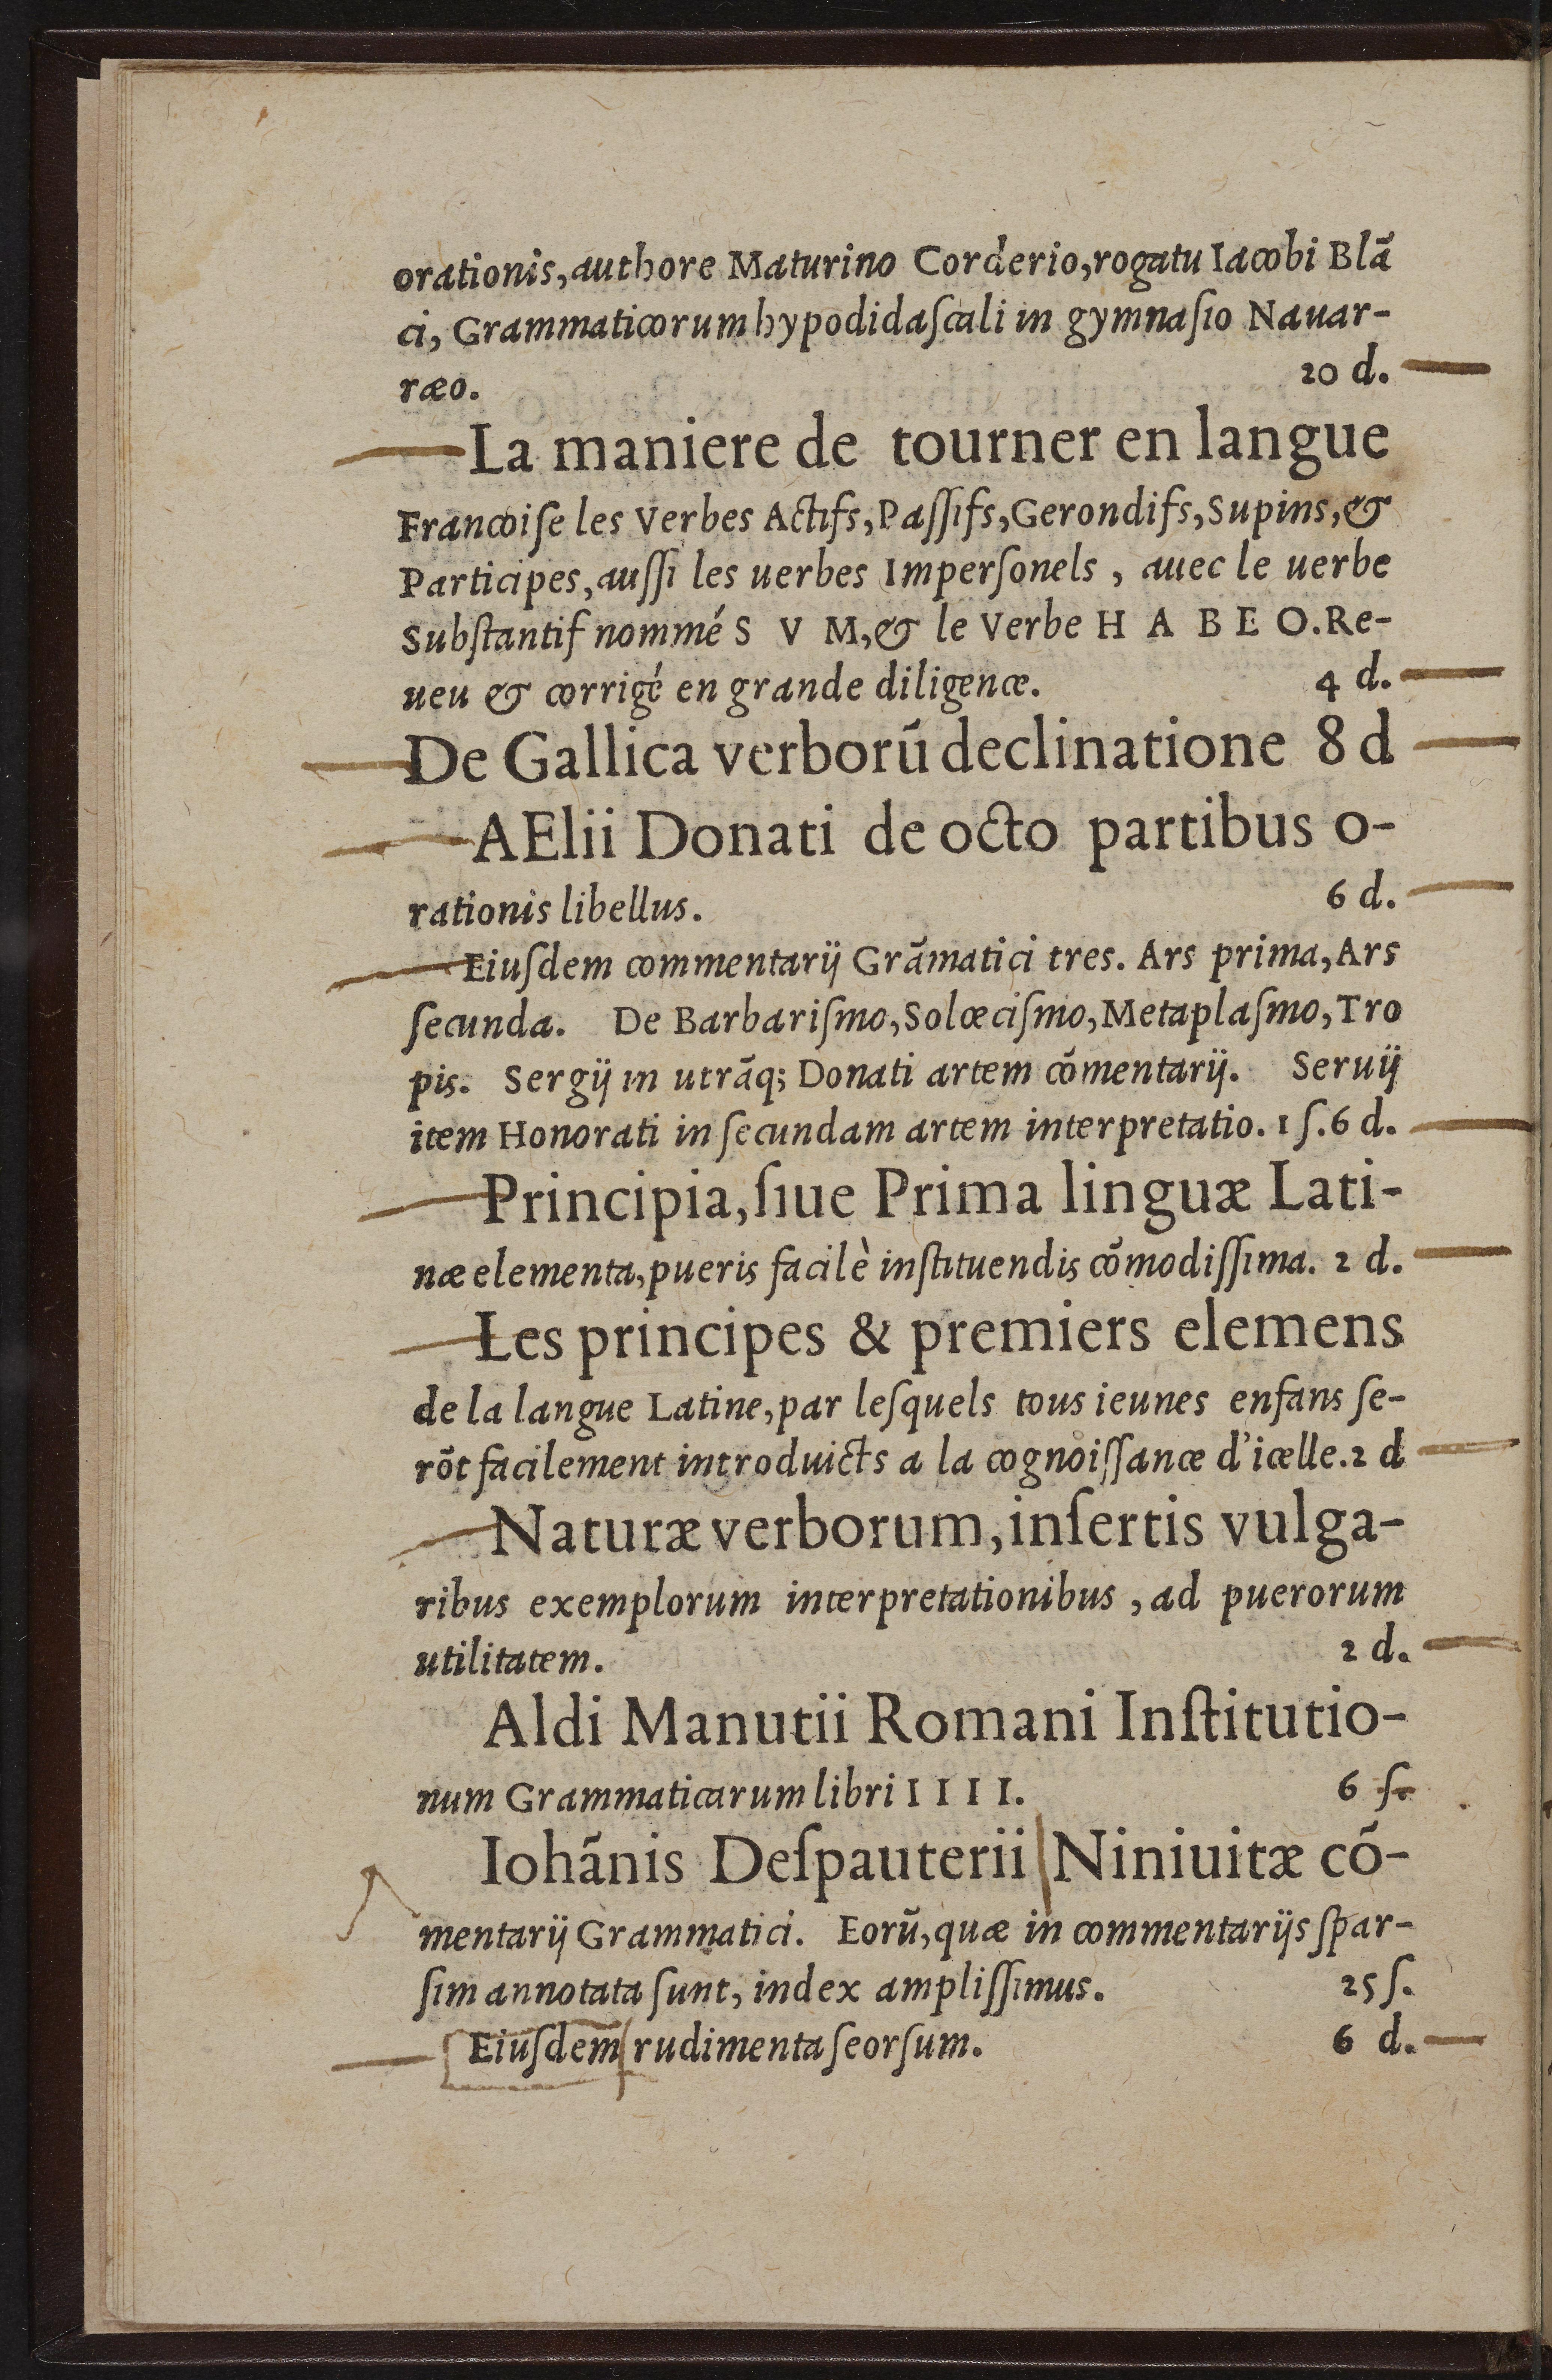 orationis, authore Maturino Corderio, rogatu Iacobi Blã
ci, Grammaticorum hypodidaſcali in gymnaſio Nauar-
ræo. 20 d.
La maniere de tourner en langue
Francoiſe les Verbes Actifs, Paſſifs, Gerondifs, Supins, &
Participes, auſſi les uerbes Imperſonels , auec le uerbe
Subſtantif nommé S V M, & le Verbe H A B E O. Re-
ueu & corrigé en grande diligence. 4 d.
De Gallica verborũ declinatione 8 d
AElii Donati de octo partibus o-
rationis libellus. 6 d.
Eiuſdem commentarij Grãmatici tres. Ars prima, Ars
ſecunda. De Barbariſmo, Solœciſmo, Metaplaſmo, Tro
pis. Sergij in utrãq; Donati artem cõmentarij. Seruij
item Honorati in ſecundam artem interpretatio. 1 ſ. 6 d.
Principia, ſiue Prima linguæ Lati-
næ elementa, pueris facilè inſtituendis cõmodiſſima. 2 d.
Les principes & premiers elemens
de la langue Latine, par leſquels tous ieunes enfans ſe-
rõt facilement introduicts a la cognoiſſance d'icelle. 2 d
Naturæ verborum, inſertis vulga-
ribus exemplorum interpretationibus , ad puerorum
utilitatem. 2 d.
Aldi Manutii Romani Inſtitutio-
num Grammaticarum libri I I I I. 6 ſ.
Iohãnis Deſpauterii Niniuitæ cõ-
mentarij Grammatici. Eorũ, quæ in commentarijs ſpar-
ſim annotata ſunt, index ampliſſimus. 25 ſ.
Eiuſdem rudimenta ſeorſum. 6 d.